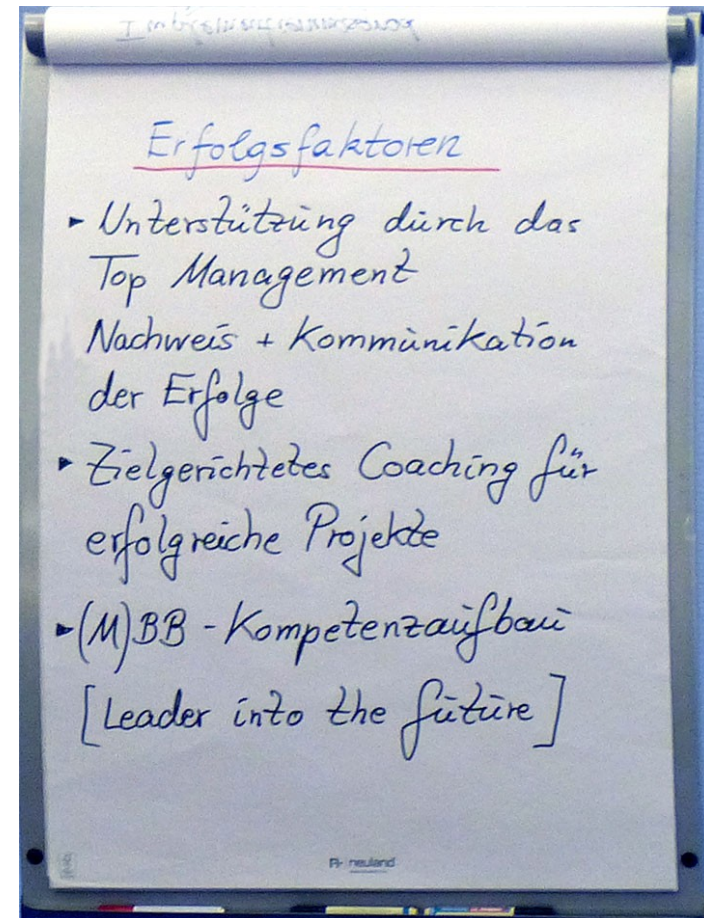 Erfolgsfaktoren
► Unterstützung durch das
Top Management
Nachweis + Kommunikation
der Erfolge
► Zielgerichtetes Coaching für
erfolgreiche Projekte
► (M)BB - Kompetenzaufbau
[Leader into the future]
neuland